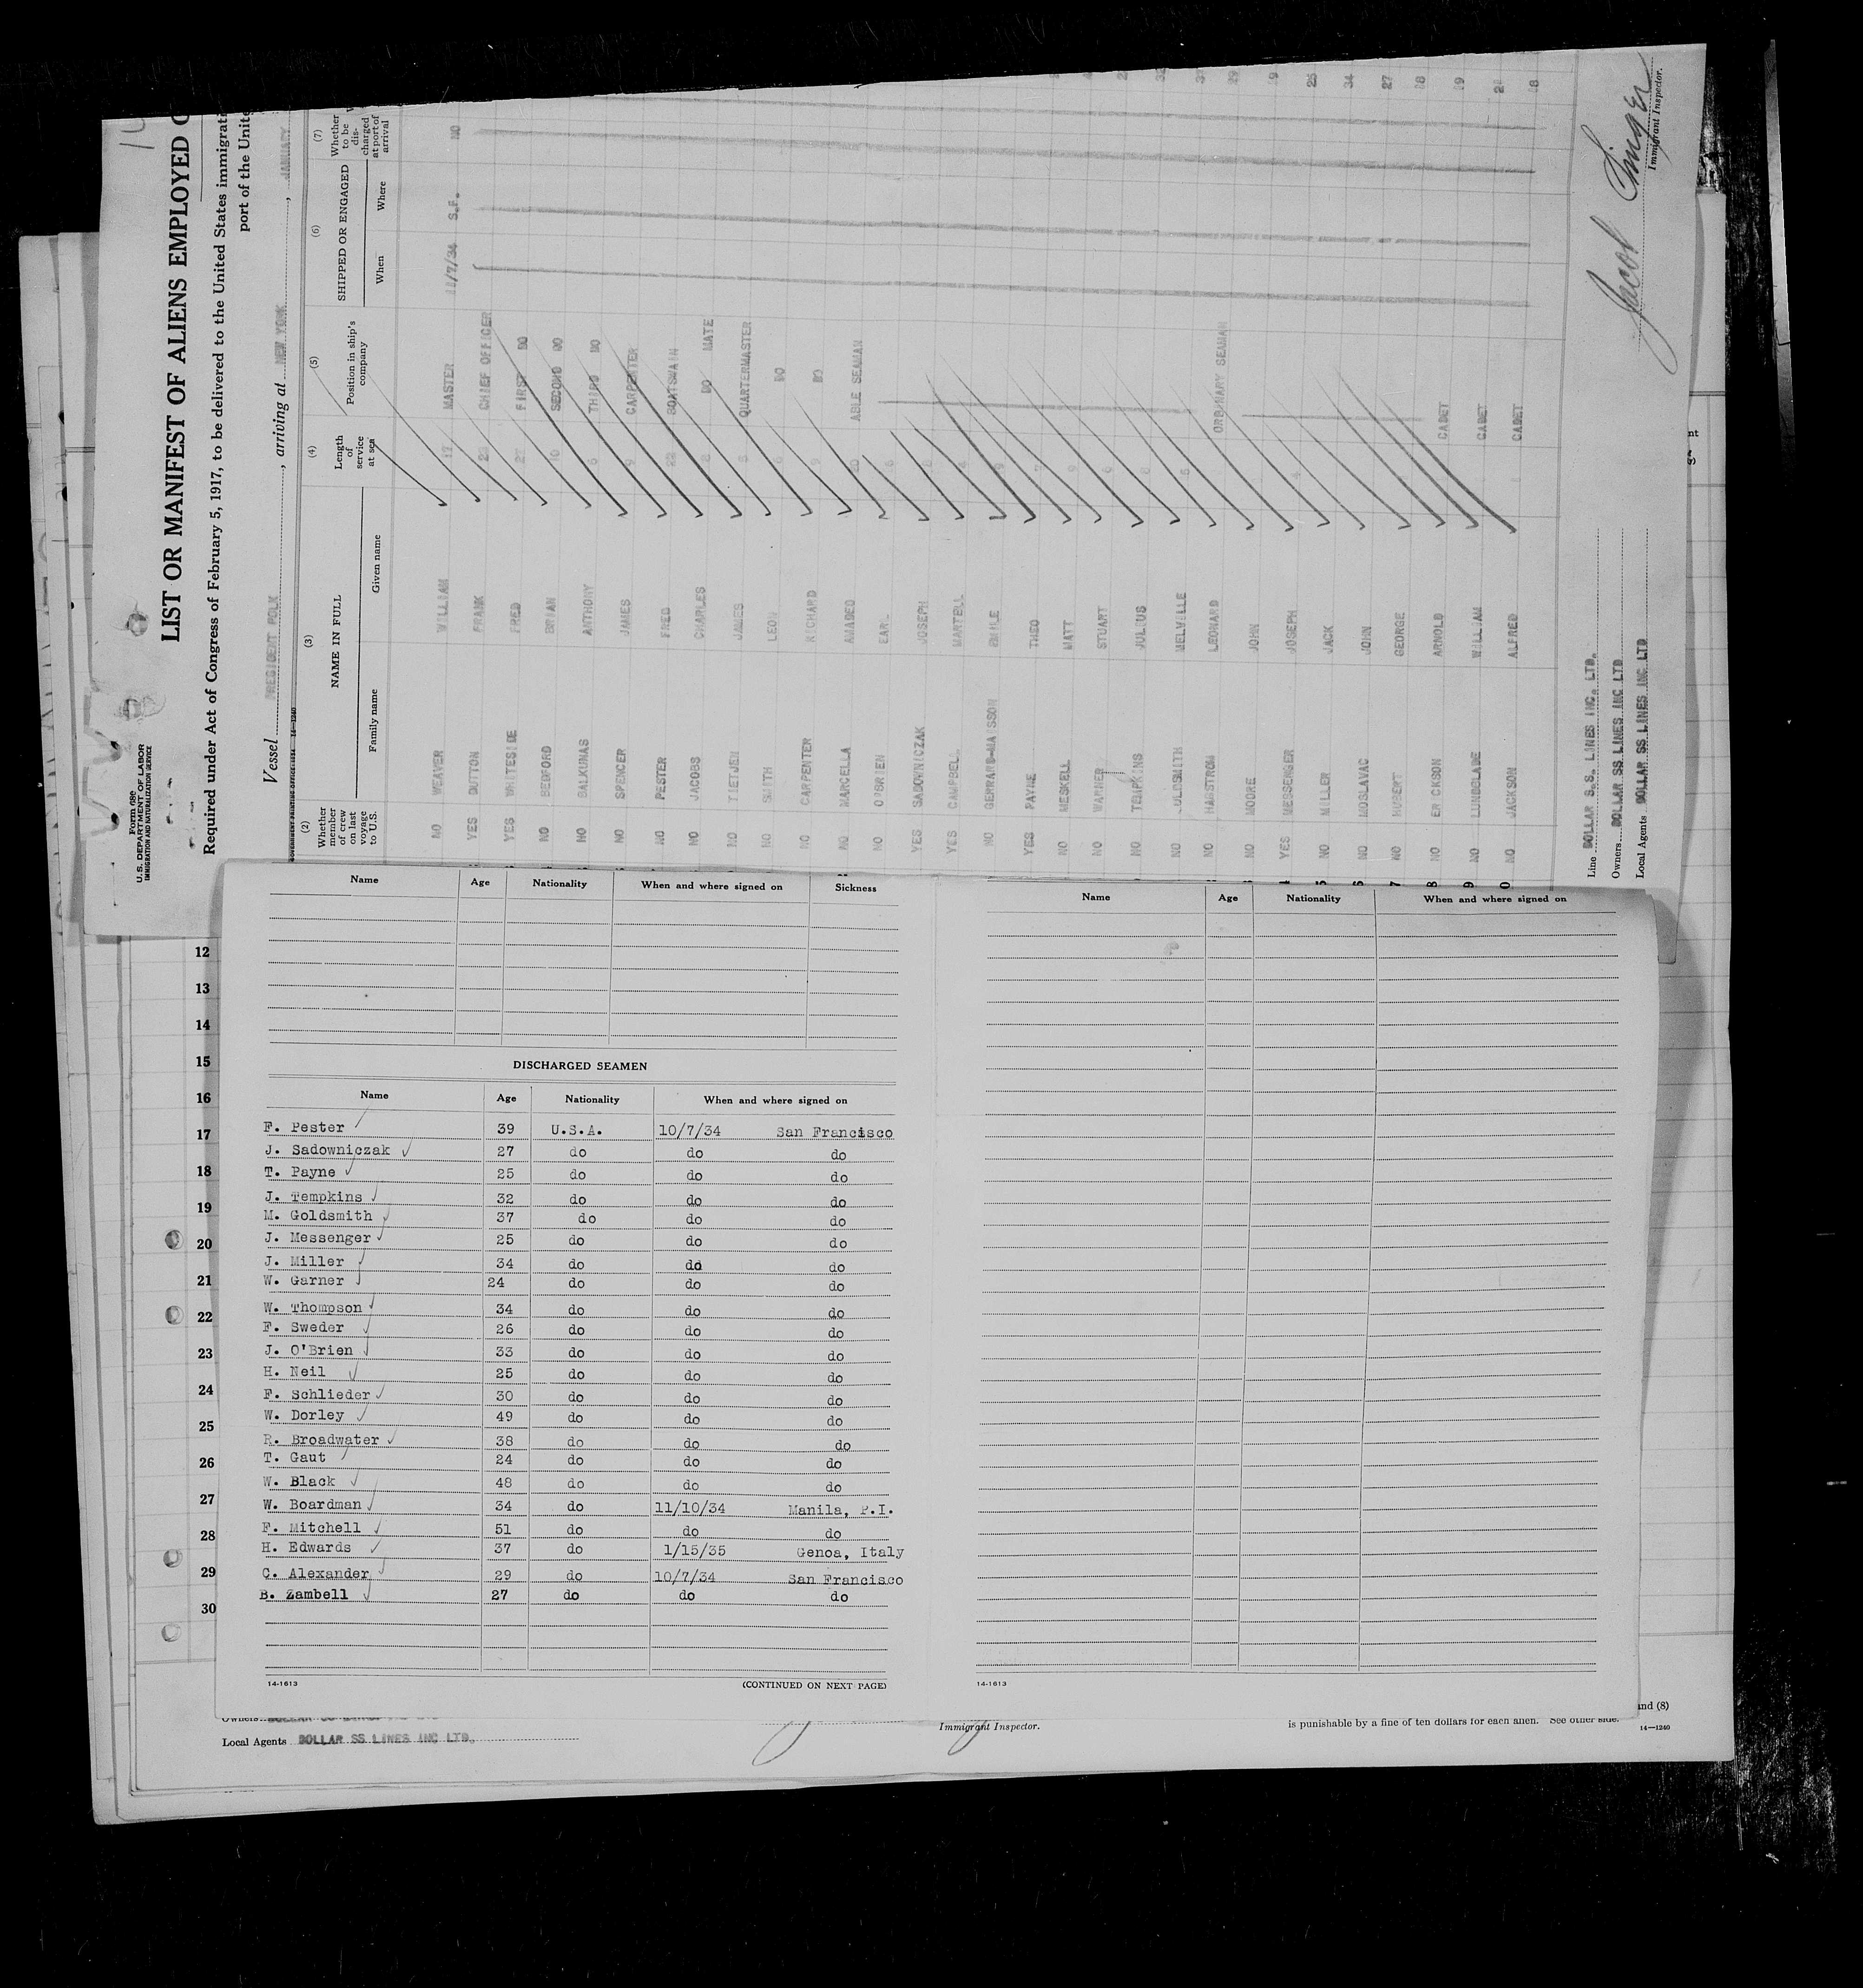 Form 680
U.S. DEPARTMENT OF LABOR
IMMIGRATION AND NATURALIZATION SERVICE
LIST OR MANIFEST OF ALIENS EMPLOYED
Required under Act of Congress of February 5, 1917, to be delivered to the United States immigrati
port of the Unite
Vessel PRESIDENT POLK, arriving at NEW YORK, JANUARY
(2) (3) (4) (5) (6) (7)
Whether member of crew on last voyage to U.S. NAME IN FULL Family name Given name Length of service at sea Position in ship's company SHIPPED OR ENGAGED When Where Whether to be discharged at port of arrival
NO WEAVER WILLIAM 17 MASTER 11/7/34 S.F. NO
YES DUTTON FRANK CHIEF OFFICER
YES WHITESIDE FRED FIRST DO
NO BEDFORD BRIAN 10 SECOND DO
NO BALKUNAS ANTHONY 6 THIRD DO
NO SPENCER JAMES 9 CARPENTER
NO PESTER FRED 22 BOATSWAIN
NO JACOBS CHARLES DO MATE
NO TIETJEN JAMES QUARTERMASTER
NO SMITH LEON DO
NO CARPENTER RICHARD 9 DO
NO MARCELLA AMADEO ABLE SEAMAN
NO O'BRIEN EARL
YES SADOWNICZAK JOSEPH
YES CAMPBELL MARTELL
NO GERRARD-MAISSON EMILE
YES PAYNE THEO
NO MESKELL MATT
NO WARNER STUART
NO TEMPKINS JULIUS
NO GOLDSMITH MELVILLE 5
NO HAGSTROM LEONARD ORDINARY SEAMAN
NO MOORE JOHN
YES MESSENGER JOSEPH
NO MILLER JACK
NO MOSLAVAC JOHN
NO HUBERT GEORGE
NO ERICKSON ARNOLD CADET
NO LUNDBLADE WILLIAM CADET
NO JACKSON ALFRED CADET
Line DOLLAR S.S. LINES INC. LTD.
Owners DOLLAR SS LINES INC LTD
Local Agents DOLLAR SS LINES INC LTD
Jacob Singer
Immigrant Inspector.
Name Age Nationality When and where signed on Sickness
DISCHARGED SEAMEN
Name Age Nationality When and where signed on
F. Pester 39 U.S.A. 10/7/34 San Francisco
J. Sadowniczak 27 do do do
T. Payne 25 do do do
J. Tempkins 32 do do do
M. Goldsmith 37 do do do
J. Messenger 25 do do do
J. Miller 34 do do do
W. Garner 24 do do do
W. Thompson 34 do do do
F. Sweder 26 do do do
J. O'Brien 33 do do do
H. Neil 25 do do do
F. Schlieder 30 do do do
W. Dorley 49 do do do
R. Broadwater 38 do do do
T. Gaut 24 do do do
W. Black 48 do do do
W. Boardman 34 do 11/10/34 Manila, P.I.
F. Mitchell 51 do do do
H. Edwards 37 do 1/15/35 Genoa, Italy
C. Alexander 29 do 10/7/34 San Francisco
B. Zambell 27 do do do
14-1613 (CONTINUED ON NEXT PAGE)
Name Age Nationality When and where signed on
14-1613
12
13
14
15
16
17
18
19
20
21
22
23
24
25
26
27
28
29
30
Owners
Local Agents DOLLAR SS LINES INC LTD.
Immigrant Inspector.
and (8)
is punishable by a fine of ten dollars for each alien. See other side.
14—1240